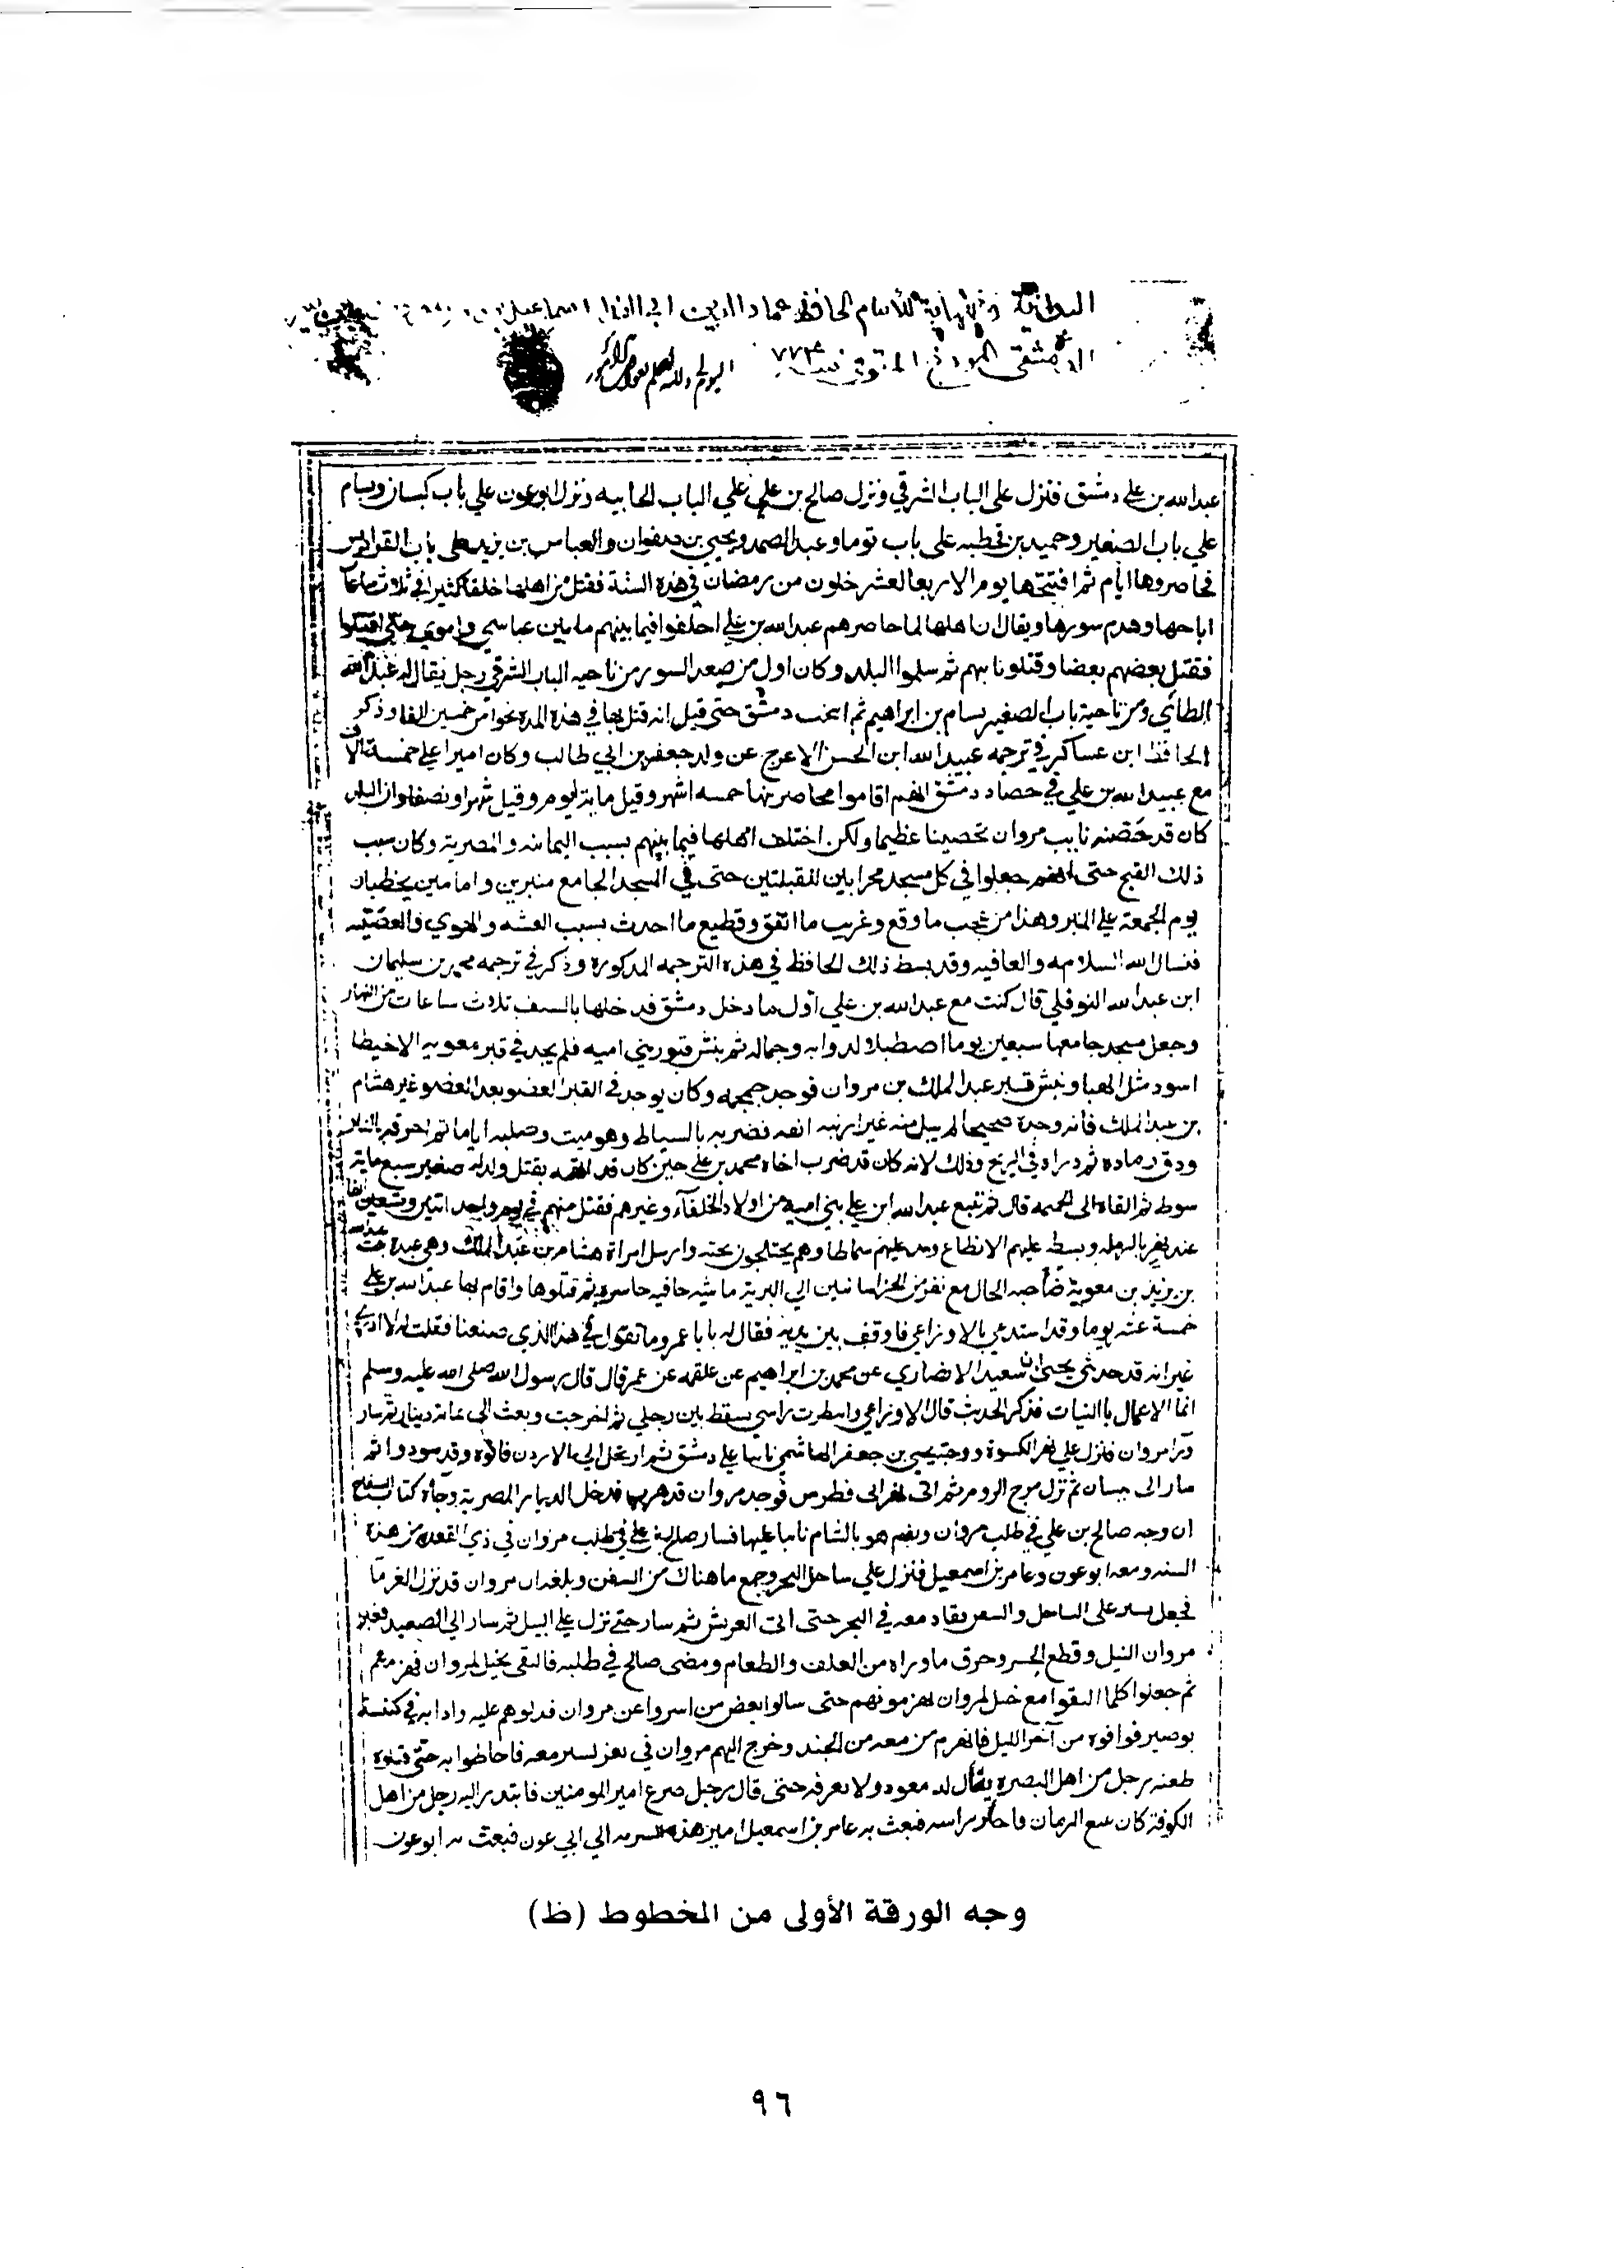 البداية والنهاية للامام الحافظ عماد الدين ابي الفدا اسماعيل
الدمشقي المورخ المتوفى سنة ٧٧٤
عبدالله بن علي دمشق فنزل على الباب الشرقي ونزل صالح بن علي علي الباب الجابيه ونزل ابوعون علي باب كيسان وبسام
علي باب الصغير وحميد بن قحطبه على باب توما وعبد الصمد ويحيي بن صفوان والعباس بن يزيد علي باب الفراديس
فحاصروها ايام ثم افتتحها يوم الاربعا لعشر خلون من رمضان في هذه السنة فقتل من اهلها خلقا كثيرا في ثلاث ساعات
اباحها وهدم سورها ويقال ان اهلها لما حاصرهم عبدالله بن علي اختلفوا فيما بينهم ما بين عباسي واموي حتى اقتتلوا
فقتل بعضهم بعضا وقتلوا نايبهم ثم سلموا البلد وكان اول من صعد السور من ناحيه الباب الشرقي رجل يقال له عبدالله
الطائي ومن ناحية باب الصغير بسام بن ابراهيم ثم ابيحت دمشق حتى قيل انه قتل بها في هذه المدة نحوا من خمسين الفا وذكر
الحافظ ابن عساكر في ترجمه عبيد الله ابن الحسن الاعرج عن ولد جعفر بن ابي طالب وكان اميرا علي خمسة الاف
مع عبيد الله بن علي في حصار دمشق انهم اقاموا محاصرينها خمسه اشهر وقيل ماية يوم وقيل شهرا ونصفا وان البلد
كان قد حصنه نايب مروان تحصينا عظيما ولكن اختلف اهلها فيما بينهم بسبب اليمانيه والمضرية وكان سبب
ذلك الفتح حتى انهم جعلوا في كل مسجد محرابين للقبلتين حتى في المسجد الجامع منبرين وامامين يخطبان
يوم الجمعة علي المنبر وهذا من عجيب ما وقع وغريب ما اتفق وفظيع ما احدث بسبب الفتنه والهوي والعصبيه
فنسال الله السلامه والعافيه وقد بسط ذلك الحافظ في هذه الترجمه المذكورة وذكر في ترجمه محمد بن سليمان
ابن عبدالله النوفلي قال كنت مع عبدالله بن علي اول ما دخل دمشق فدخلها بالسيف ثلاث ساعات من النهار
وجعل مسجد جامعها سبعين يوما اصطبلا لدوابه وجماله ثم نبش قبور بني اميه فلم يجد في قبر معويه الا خيطا
اسود مثل الهبا ونبش قبر عبدالملك بن مروان فوجد جمجمه وكان يوجد في القبر العضو بعد العضو غير هشام
بن عبد الملك فانه وجده صحيحا لم يبل منه غير ارنبه انفه فضربه بالسياط وهو ميت وصلبه اياما ثم احرقه بالنار
ودق رماده ثم ذراه في الريح وذلك لانه كان قد ضرب اخاه محمد بن علي حين كان قد اتهمه بقتل ولد له صغير سبع ماية
سوط ثم نفاه الى الحميمة قال ثم تتبع عبدالله ابن علي بني اميه من اولاد الخلفآء وغيرهم فقتل منهم في يوم واحد اثنين وتسعين الفا
عند نهر بالرمله وبسط عليهم الانطاع ومد عليهم سماطا وهم يختلجون تحته وارسل امراة هشام بن عبدالملك وهي عبدة بنت عبدالله
بن يزيد بن معوية صاحبه الخال مع نفر من الخراسانيين الي البرية ماشيه حافيه حاسره ثم قتلوها واقام بها عبدالله بن علي
خمسة عشر يوما وقد استدعي بالاوزاعي فاوقف بين يديه فقال له يابا عمرو ما تقول في هذا الذي صنعنا فقلت له لا ادري
غير انه قد حدثني يحيى ابن سعيد الانصاري عن محمد بن ابراهيم عن علقمه عن عمر قال قال رسول الله صلى الله عليه وسلم
انما الاعمال باالنيات فذكر الحديث قال الاوزاعي وانتظرت راسي يسقط بين رجلي ثم اخرجت وبعث الى بماية دينار ثم سار
ورآ مروان فنزل علي نهر الكسوة ووجه يحيى بن جعفر الهاشمي نايبا علي دمشق ثم ارتحل الي الاردن فاتوه وقد سودوا ثم
سار الى بيسان ثم نزل مرج الروم ثم اتى نهر ابي فطرس فوجد مروان قد هرب فدخل الديار المصرية وجآه كتاب السفاح
ان وجه صالح بن علي في طلب مروان ويقيم هو بالشام نايبا عليها فسار صالح بن علي في طلب مروان في ذي القعده من هذه
السنه ومعه ابوعون وعامر بن اسمعيل فنزل علي ساحل البحر وجمع ما هناك من السفن وبلغه ان مروان قد نزل الفرما
فجعل يسير على الساحل والسفن تقاد معه في البحر حتى اتى العريش ثم سار حتى نزل علي النيل ثم سار الي الصعيد فعبر
مروان النيل وقطع الجسر وحرق ما وراه من العلف والطعام ومضى صالح في طلبه فالتقى بخيل لمروان فهزمهم
ثم جعلوا كلما التقوا مع خيل لمروان يهزمونهم حتى سالوا بعض من اسروا عن مروان فدلوهم عليه واذا به في كنيسة
بوصير فوافوه من آخر الليل فانهزم من معه من الجند وخرج اليهم مروان في نفر يسير معه فاحاطوا به حتى قتلوه
طعنه رجل من اهل البصره يقال له معود ولا يعرفه حتى قال رجل صرع امير المومنين فابتدر اليه رجل من اهل
الكوفة كان يبيع الرمان فاحتز راسه فبعث به عامر بن اسمعيل امير هذه السريه الي ابي عون فبعث به ابوعون
وجه الورقة الأولى من المخطوط (ظ)
٩٦